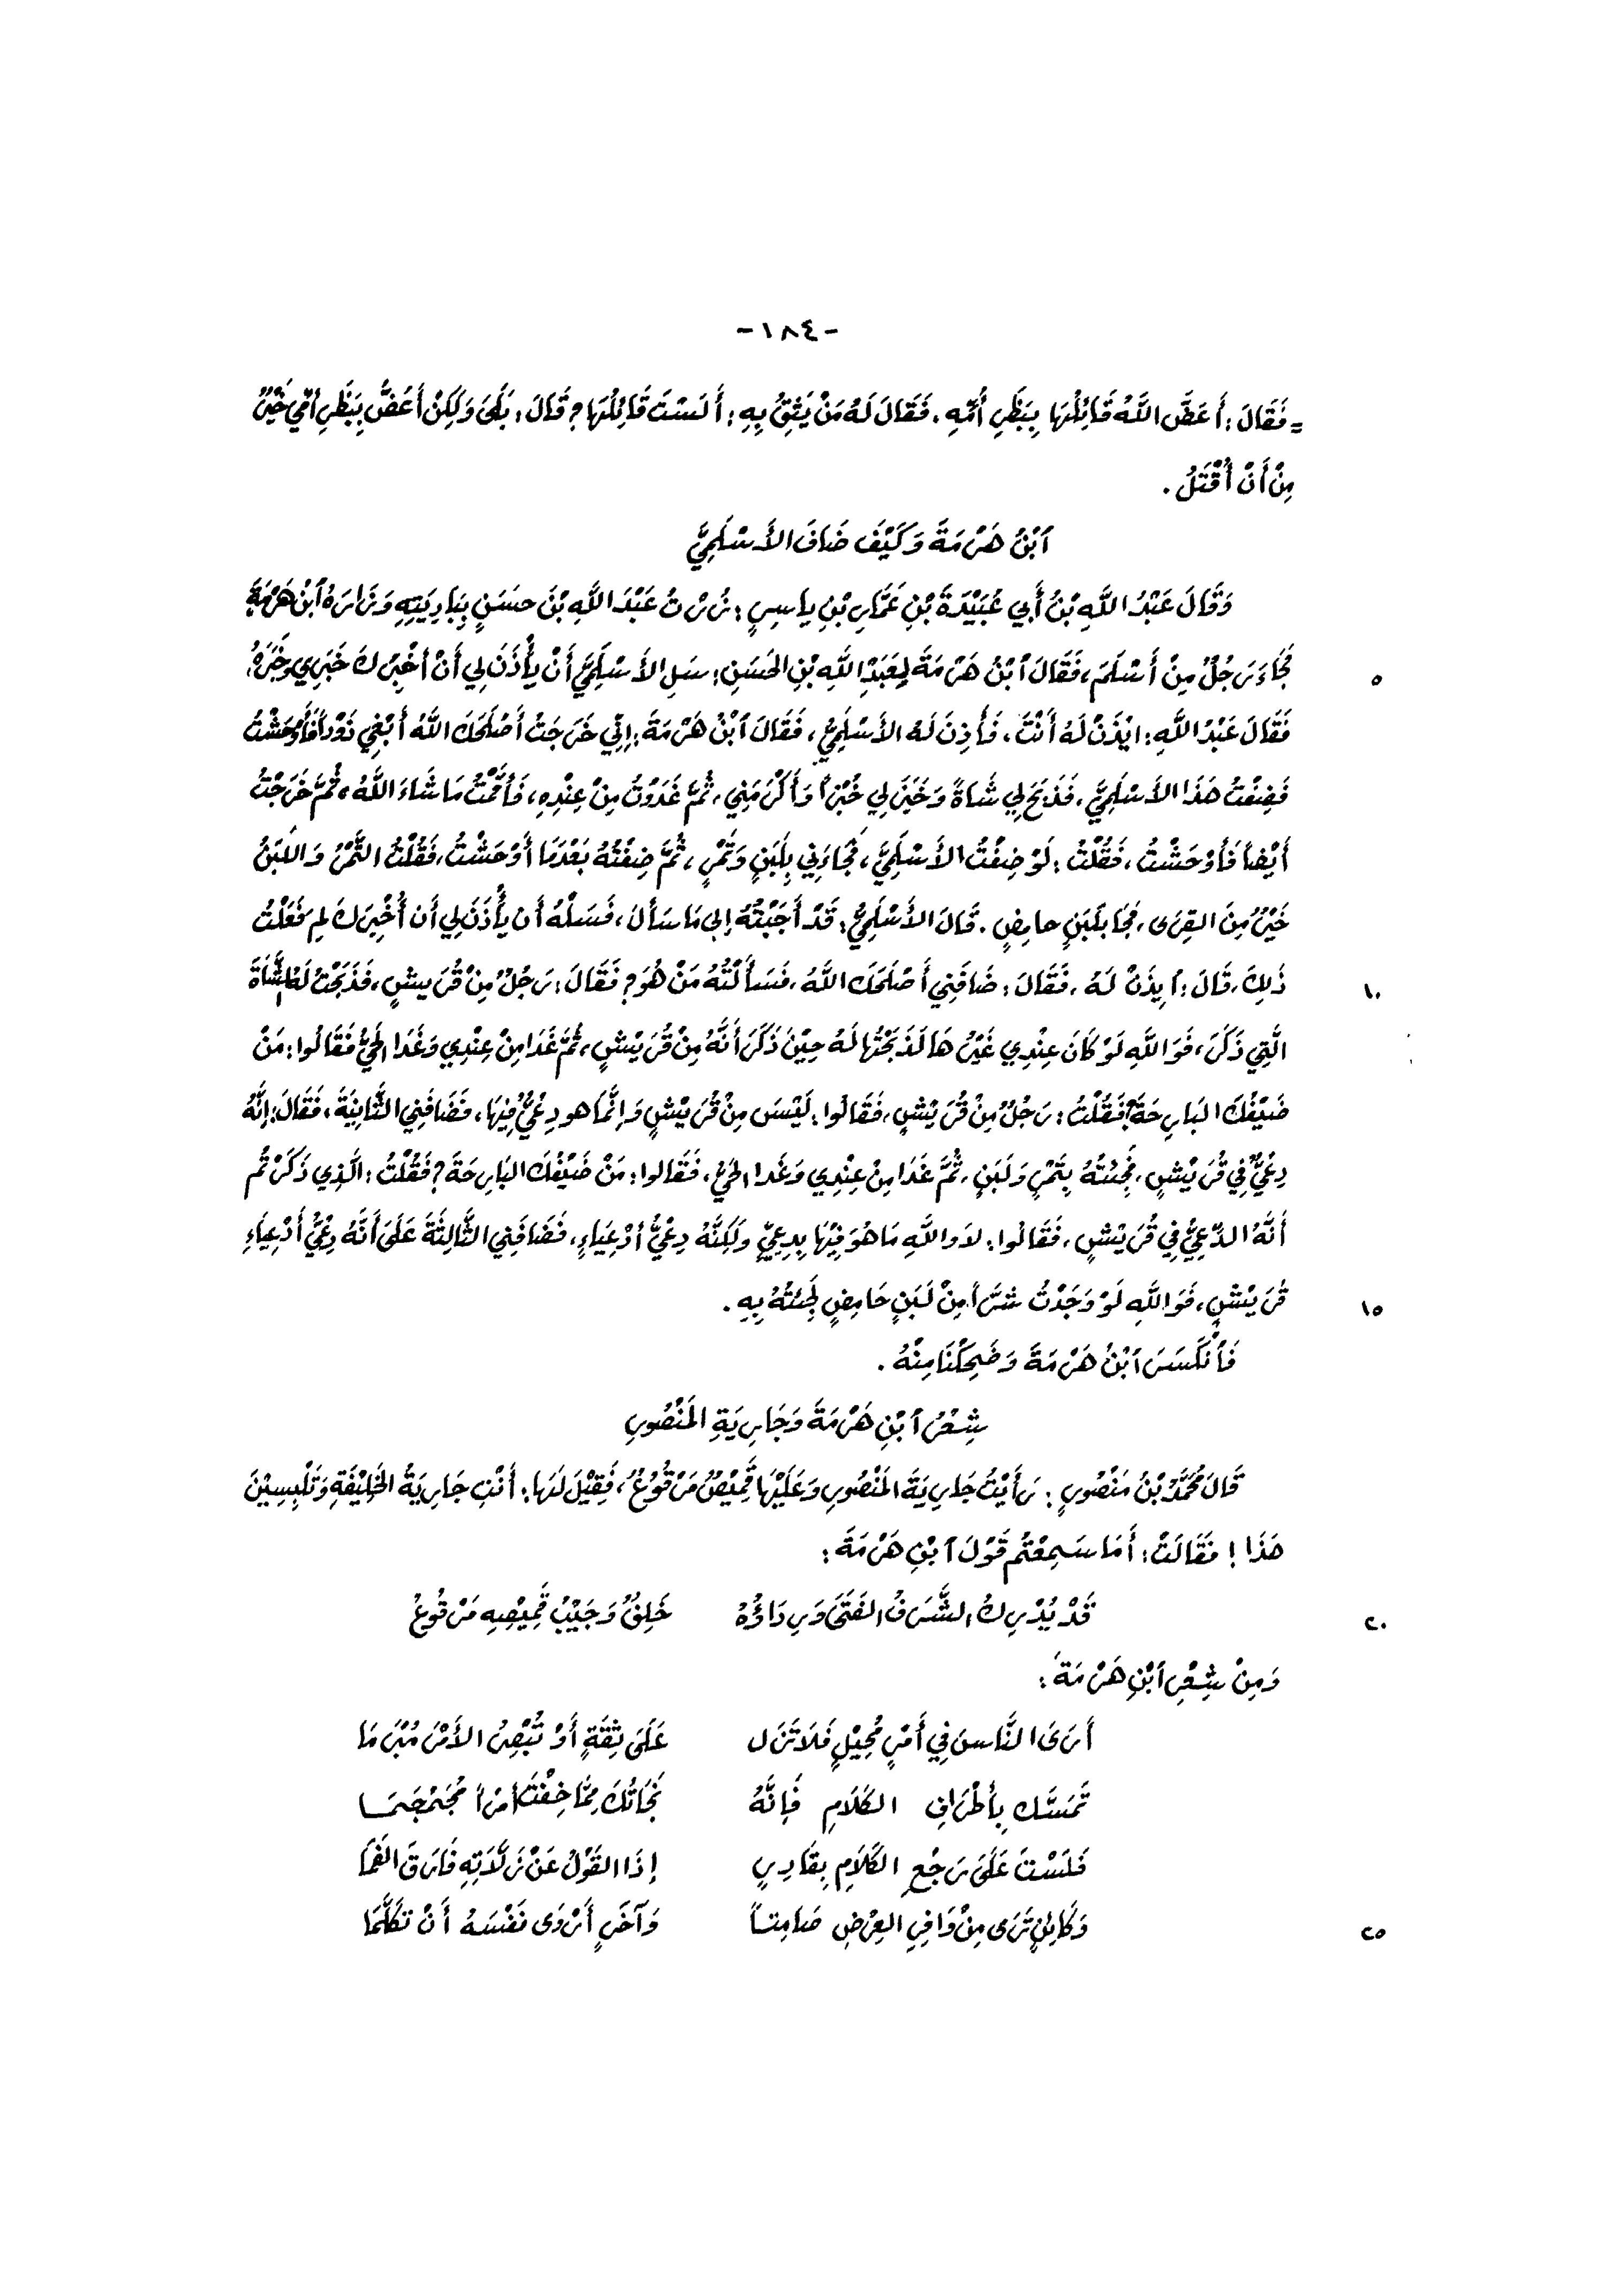 -١٨٤-
= فَقَالَ: أَعَضَّ اللَّهُ قَائِلَهَا بِبَظْرِ أُمِّهِ. فَقَالَ لَهُ مَنْ يَثِقُ بِهِ: أَلَسْتَ قَائِلَهَا؟ قَالَ: بَلَى وَلَكِنْ أَعَضُّ بِبَظْرِ أُمِّي خَيْرٌ
مِنْ أَنْ أُقْتَلُ.
ٱبْنُ هَرْمَةَ وَكَيْفَ ضَافَ الأَسْلَمِيَّ
وَقَالَ عَبْدُ اللَّهِ بْنُ أَبِي عُبَيْدَةَ بْنِ عَمَّارِ بْنِ يَاسِرٍ: زُرْتُ عَبْدَ اللَّهِ بْنَ حسَنٍ بِبَادِيَتِهِ وَزَارَهُ ٱبْنُ هَرْمَةَ
٥ فَجَاءَ رَجُلٌ مِنْ أَسْلَمَ، فَقَالَ ٱبْنُ هَرْمَةَ لِعَبْدِ اللَّهِ بْنِ الحَسَنِ: سَلِ الأَسْلَمِيَّ أَنْ يَأْذَنَ لِي أَنْ أُخْبِرَكَ خَبَرِي وَخَبَرَهُ،
فَقَالَ عَبْدُ اللَّهِ: ائْذَنْ لَهُ أَنْتَ. فَأَذِنَ لَهُ الأَسْلَمِيُّ، فَقَالَ ٱبْنُ هَرْمَةَ: إِنِّي خَرَجْتُ أَصْلَحَكَ اللَّهُ أَبْغِي ذَوْداً فَأَوْحَشْتُ
فَضِفْتُ هَذَا الأَسْلَمِيَّ، فَذَبَحَ لِي شَاةً وَخَبَزَ لِي خُبْزاً وَأَكْرَمَنِي، ثُمَّ غَدَوْتُ مِنْ عِنْدِهِ، فَأَقَمْتُ مَا شَاءَ اللَّهُ، ثُمَّ خَرَجْتُ
أَيْضاً فَأَوْحَشْتُ، فَقُلْتُ: لَوْ ضِفْتُ الأَسْلَمِيَّ، فَجَاءَنِي بِلَبَنٍ وَتَمْرٍ، ثُمَّ ضِفْتُهُ بَعْدَمَا أَوْحَشْتُ، فَقُلْتُ التَّمْرُ وَاللَّبَنُ
خَيْرٌ مِنَ القِرَى، فَجَا بِلَبَنٍ حامِضٍ. قَالَ الأَسْلَمِيُّ: قَدْ أَجَبْتُهُ إِلى مَا سَأَلَ، فَسَلْهُ أَن يَأْذَنَ لِي أَن أُخْبِرَكَ لِمِ فَعَلْتُ
١٠ ذَلِكَ، قَالَ: ٱيذَنْ لَهُ، فَقَالَ: ضَافَنِي أَصْلَحَكَ اللَّهُ، فَسَأَلْتُهُ مَنْ هُوَ؟ فَقَالَ: رَجُلٌ مِنْ قُرَيشٍ، فَذَبَحْتُ لَهُ الشَّاةَ
الَّتِي ذَكَرَ، فَوَاللَّهِ لَوْ كَانَ عِنْدِي غَيْرُهَا لَذَبَحْتُها لَهُ حِيْنَ ذَكَرَ أَنَّهُ مِنْ قُرَيْشٍ، ثُمَّ غَدَا مِنْ عِنْدِي وَغَدَا الحَيُّ فَقَالُوا: مَنْ
ضَيْفُكَ البَارِحَةَ؟ فَقُلْتُ: رَجُلٌ مِنْ قُرَيْشٍ، فَقَالُوا: لَيْسَ مِنْ قُرَيْشٍ وَإِنَّمَا هو دِعِيٌّ فِيْهَا، فَضَافَنِي الثَّانِيَةَ، فَقَالَ: إِنَّهُ
دِعِيٌّ فِي قُرَيْشٍ، فَجِئْتُهُ بِتَمْرٍ وَلَبَنٍ، ثُمَّ غَدَا مِنْ عِنْدِي وَغَدا الحَيُّ، فَقَالُوا: مَنْ ضَيْفُكَ البَارِحَةَ؟ فَقُلْتُ: الَّذِي ذَكَرْتُم
أَنَّهُ الدِّعِيُّ فِي قُرَيْشٍ، فَقَالُوا: لاَ واللَّهِ مَا هُوَ فِيْهَا بِدِعِيٍّ وَلَكِنَّهُ دِعِيُّ أَدْعِيَاءٍ، فَضَافَنِي الثَّالِثَةَ عَلَى أَنَّهُ دِعِيُّ أَدْعِيَاءِ
١٥ قُرَيْشٍ، فَوَاللَّهِ لَوْ وَجَدْتُ شَرّاً مِنْ لَبَنٍ حَامِضٍ لَجِئْتُهُ بِهِ.
فَٱنْكَسَرَ ٱبْنُ هَرْمَةَ وَضَحِكْنَا مِنْهُ.
شِعْرُ ٱبْنِ هَرْمَةَ وَجَارِيَةِ المَنْصُورِ
قَالَ مُحَمَّدُ بْنُ مَنْصُورٍ: رَأَيْتُ جَارِيَةَ المَنْصُورِ وَعَلَيْهَا قَمِيْصٌ مَرْقُوعٌ، فَقِيْلَ لَهَا: أَنْتِ جَارِيَةُ الخَلِيْفَةِ وَتَلْبِسِيْنَ
هَذَا! فَقَالَتْ: أَمَا سَمِعْتُم قَوْلَ ٱبْنِ هَرْمَةَ:
٢٠ قَدْ يُدْرِكُ الشَّرَفُ الفَتَى وَرِدَاؤُهُ خَلِقٌ وَجَيْبُ قَمِيْصِهِ مَرْقُوعُ
وَمِنْ شِعْرِ ٱبْنِ هَرْمَةَ:
أَرَى النَّاسَ فِي أَمْرٍ سُحِيْلٍ فَلاَ تَزَل عَلَى ثِقَةٍ أَوْ تُبْصِرُ الأَمْرَ مُبْرَمَا
تَمَسَّك بِأَطْرَافِ الكَلاَمِ فَإِنَّهُ نَجَاتُكَ مِمَّا خِفْتَ أَمْراً مُجَمْجَمَا
فَلَسْتَ عَلَى رَجْعِ الكَلاَمِ بِقَادِرٍ إِذَا القَوْلُ عَنْ زَلاَّتِهِ فَارَقَ الفَمَا
٢٥ وَكَائِنْ تَرَى مِنْ وَافِي العِرْضِ صَامِتاً وَآخَرٍ أَرْدَى نَفْسَهُ أَنْ تَكَلَّمَا